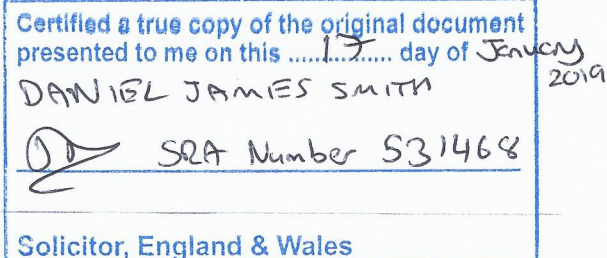 Certified a true copy of the original document
presented to me on this ......17...... day of January
2019
DANIEL JAMES SMITH
SRA Number 531468
Solicitor, England & Wales